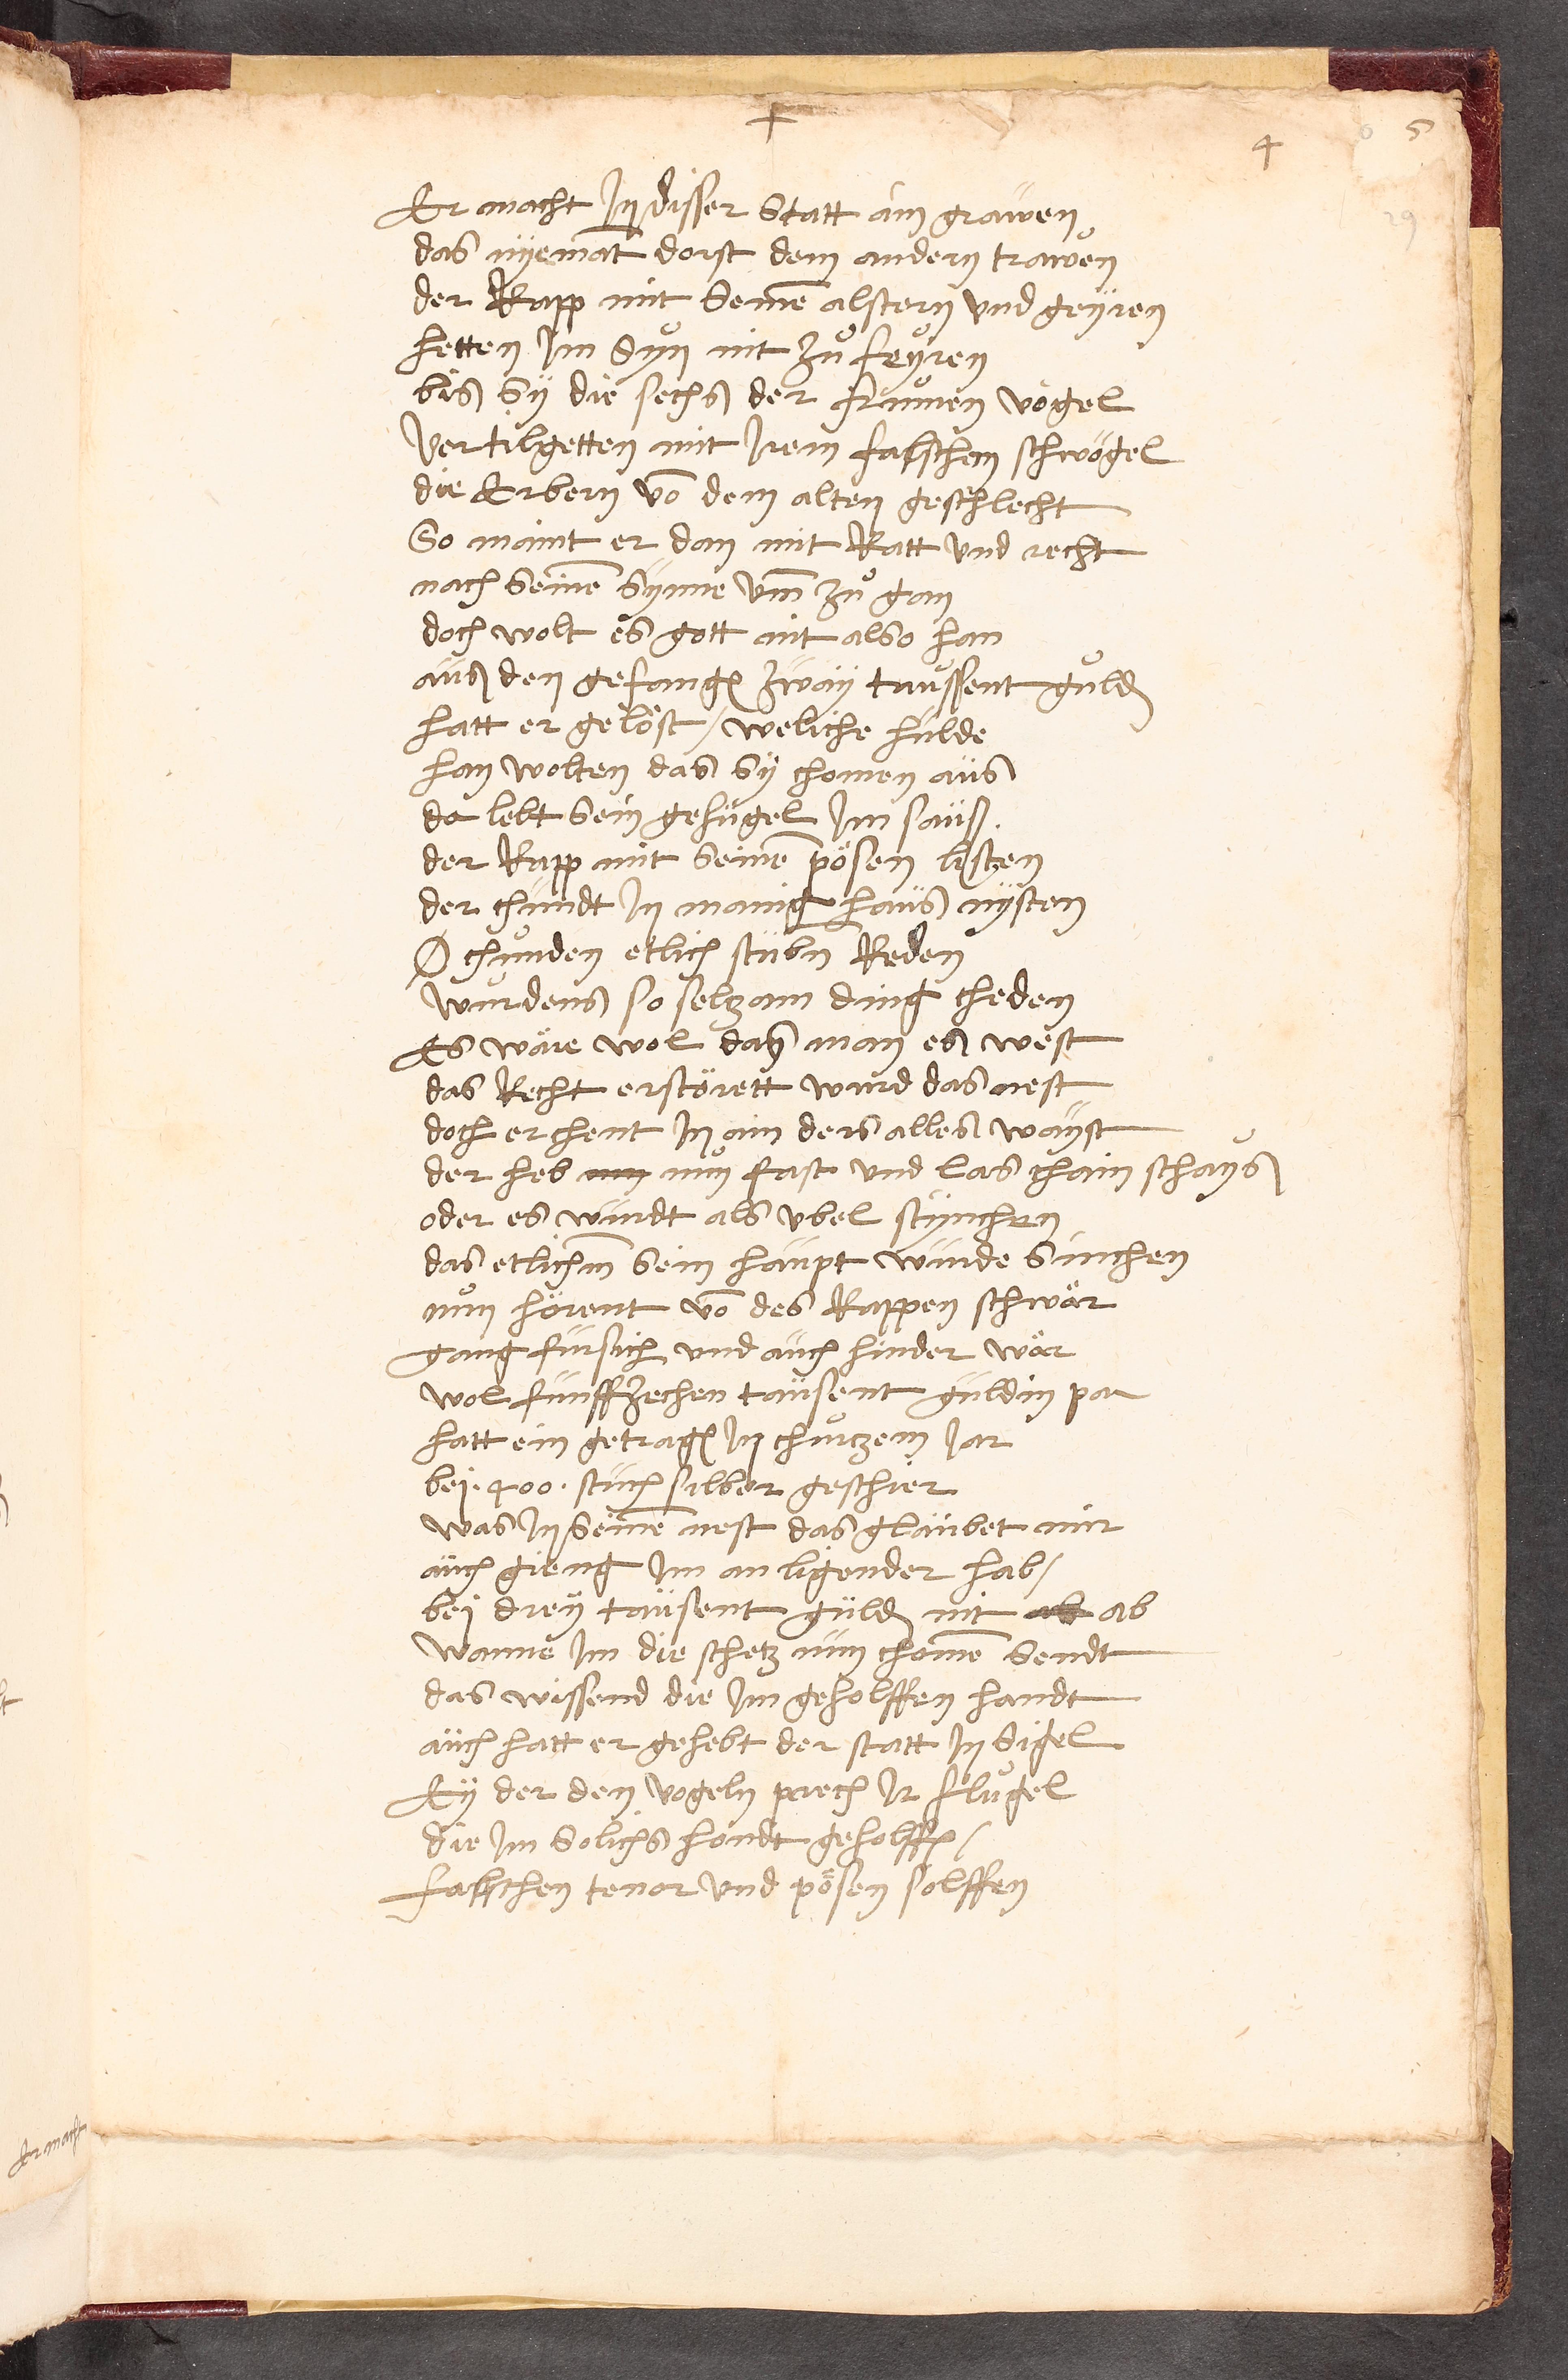 4
5
29
Er macht Jn disser Statt ain grawen
das nyemāt dorst dem andern trawen
der Rapp mit Seinē alstern vnd geyren
hetten Jm Syn nit zů feyren
bis sy die sechs der frumen vögel
vertilgetten mit Jrem falschem schwögel
die Erbern vō dem alten geschlecht
So maint er dan mit Ratt vnd recht
nach Seinē synne vm̄ zů gan
doch wolt es gott nit also han
aus den gefangē zway taussent guldē
hatt er gelöst / weliche hulde
han wolten das sy chomen aus
da lebt Sein gefugel Jm sauß.
der Rapp mit Seinē pösen listen
der chundt Jn manig haus nysten
O chunden etlich stubn Reden
wurdens so seltzam ding cheden
Es wäre wol das man es west
das Recht erstörett wurd das nest
doch erchent Jn ain ders alles wayst
der heb nun fast vnd las chain schays
oder es wurdt als vbel stynchen
das etlichm̄ Sein haupt wurde Sinchen
nun hörent vō des Rappen schwär
gang fürsich vnd auch hinder wär
wol funffzechen tausent guldin par
hatt ein getragē Jn churtzem Jar
bei .400. stuch silber geschier
was Jn Seinē nest das glaubet mir
auch gieng Jm an ligender hab /
bei drey tausent guldē nit ab
wanne Jm die schetz nun chomē Sendt
das wissend die Jm geholffen handt
auch hatt er gehebt der statt Jn Sigel
Ey der den vogeln prech Jr flugel
die Jm Solichs handt geholffē /
falschen tenor vnd pösen solffen
Er macht